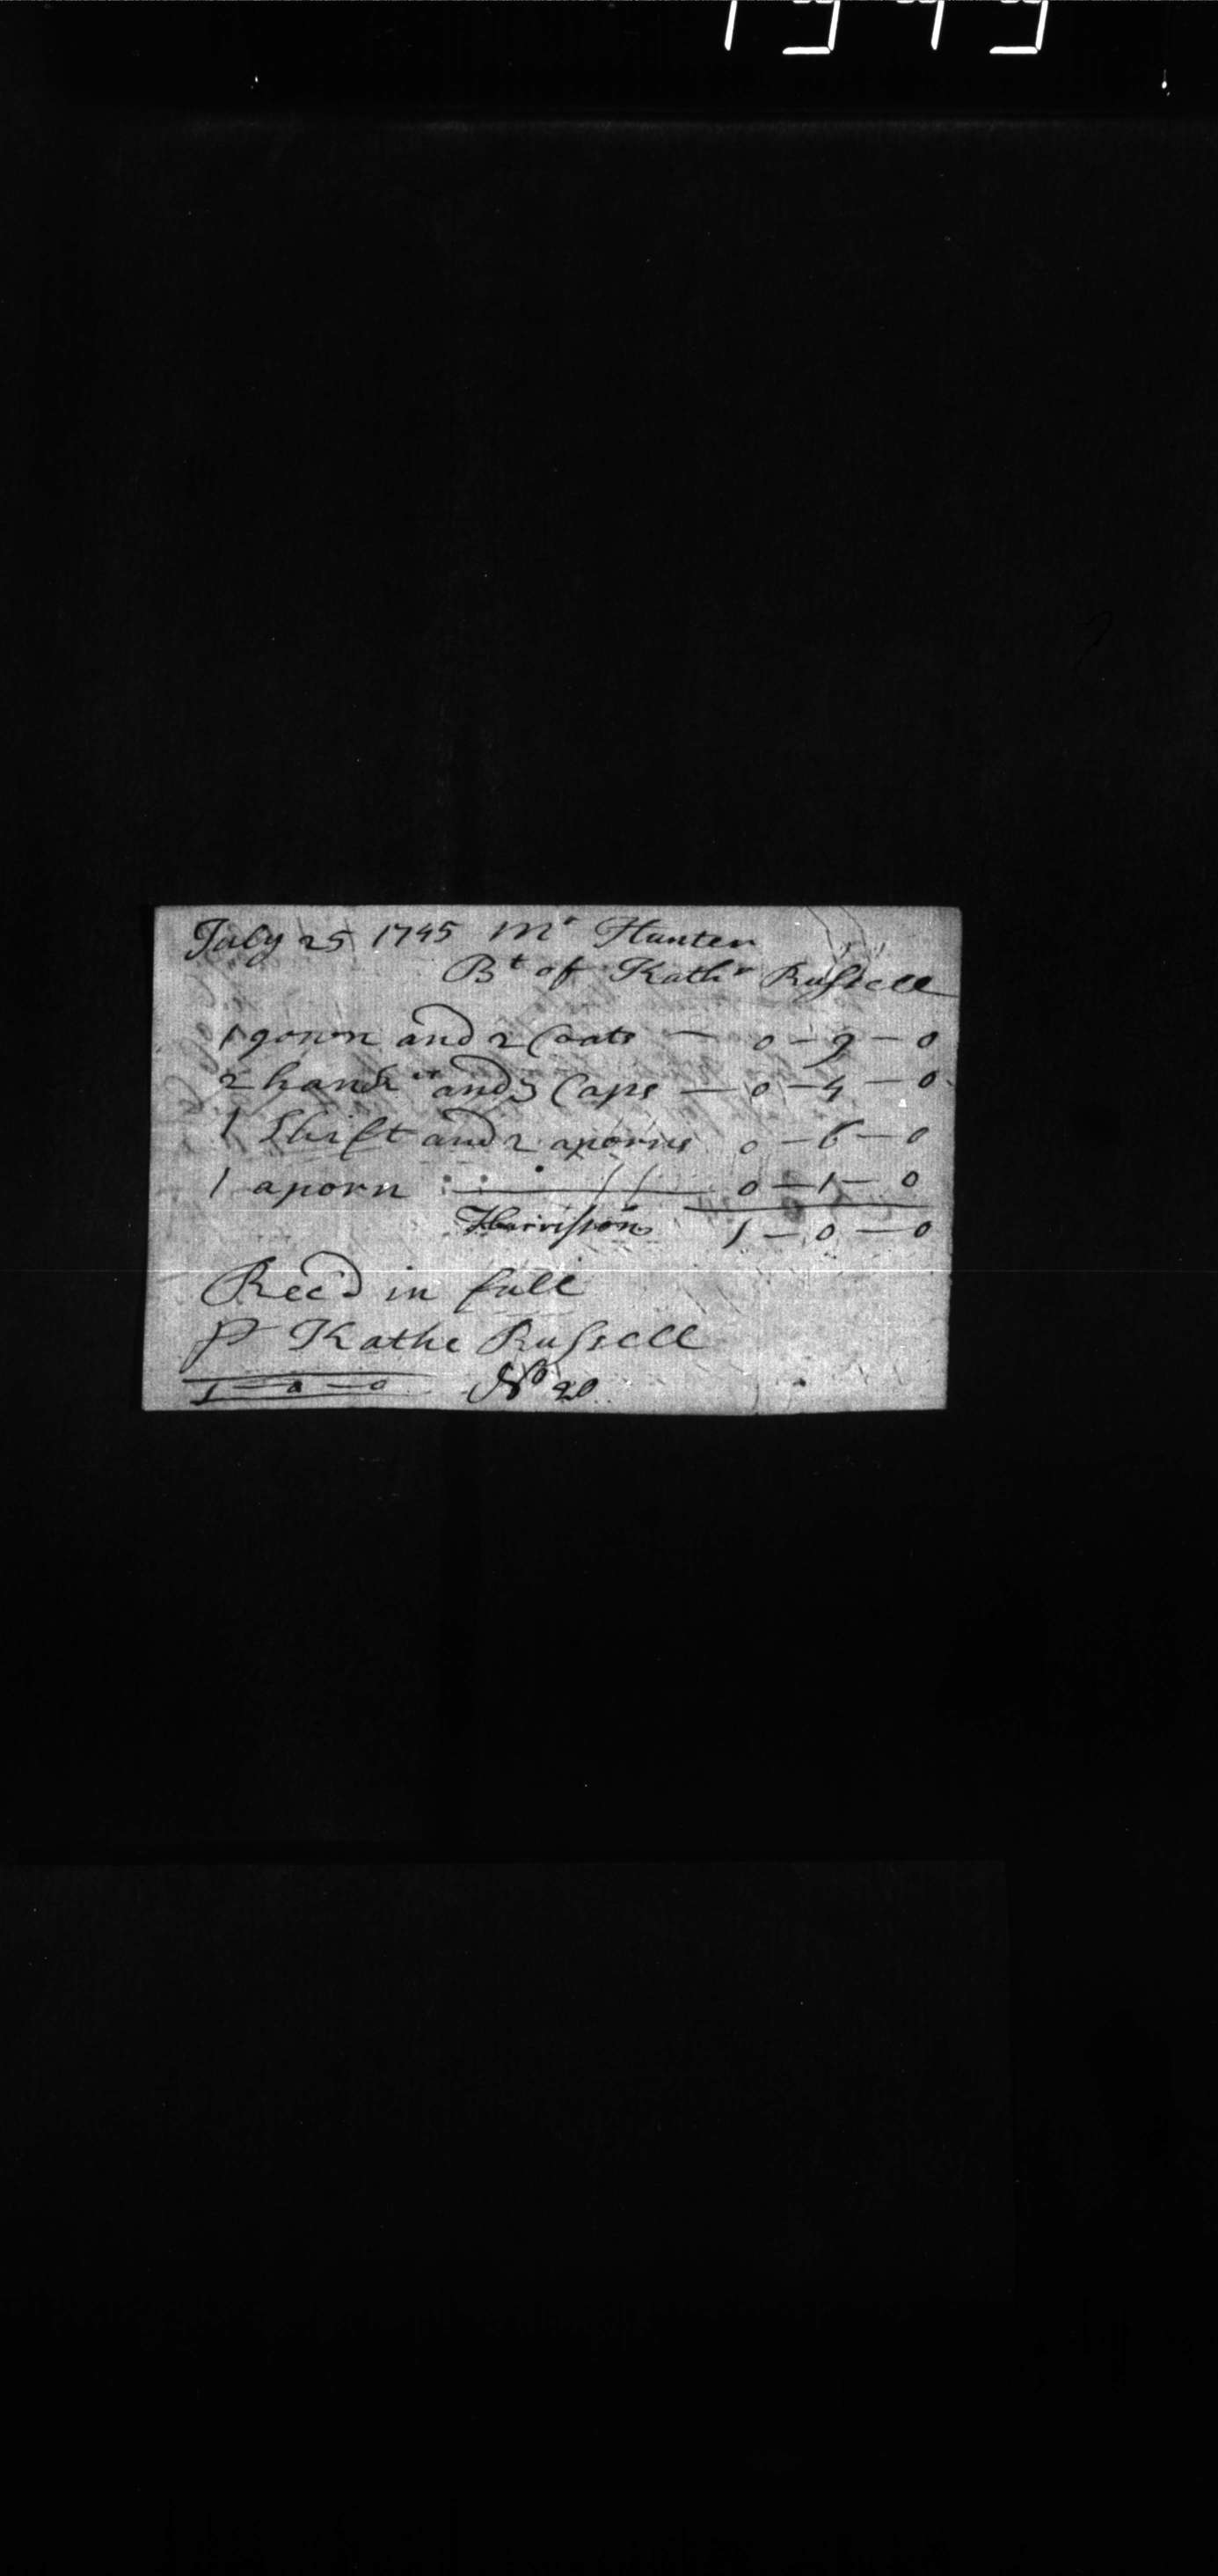 July 25 1745 Mr Hunter
Bt of Kathr Russell
1 gown and 2 Coats — 0 – 9 – 0
2 handk and 3 Caps — 0 – 4 – 0
1 Shift and 2 aporns 0 – 6 – 0
1 aporn 0 – 1 – 0
Harrisson 1 – 0 – 0
Rec'd in full
pr Kathe Russell
1 – 0 – 0 No 20